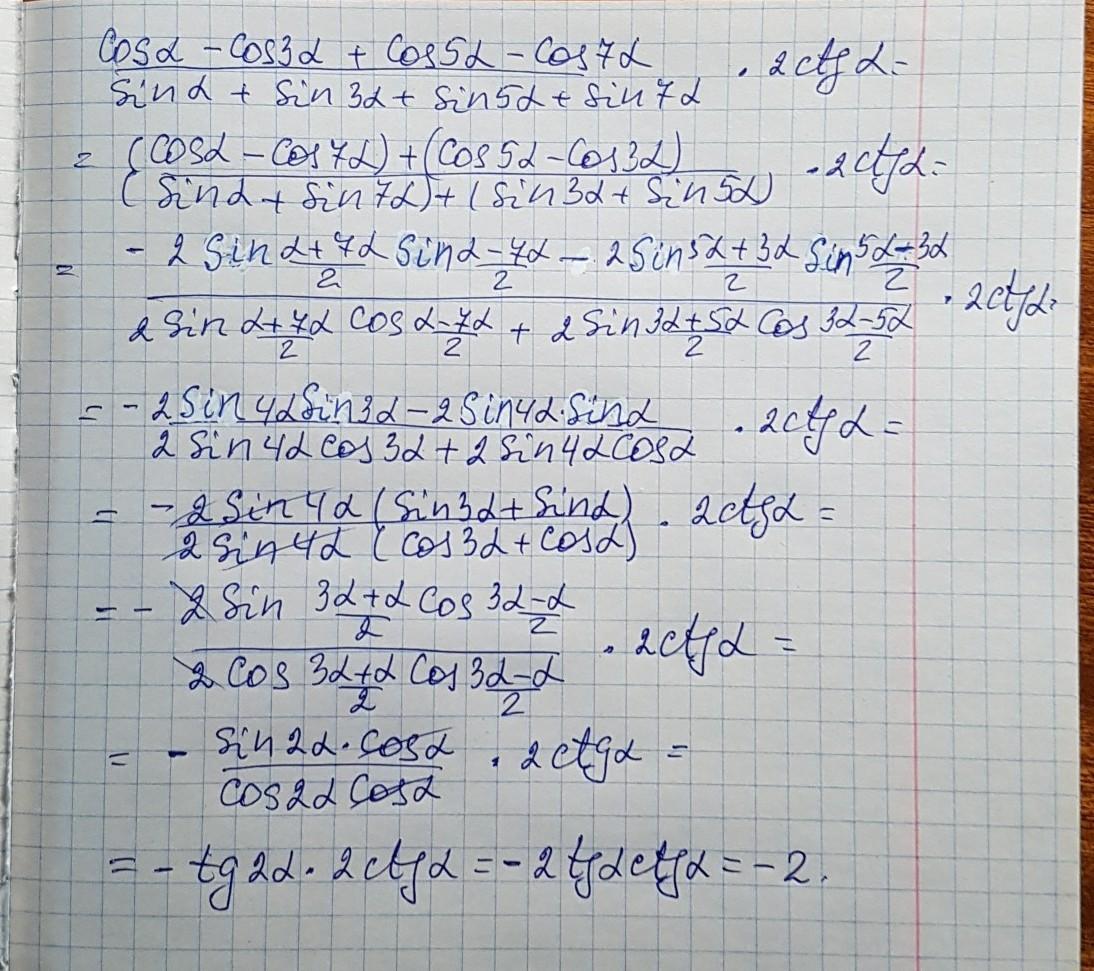 (cosα - cos3α + cos5α - cos7α)/(sinα + sin3α + sin5α + sin7α) · 2ctgα =
= ((cosα - cos7α) + (cos5α - cos3α))/((sinα + sin7α) + (sin3α + sin5α)) · 2ctgα =
= (-2 sin (α+7α)/2 sin (α-7α)/2 - 2 sin (5α+3α)/2 sin (5α-3α)/2)/(2 sin (α+7α)/2 cos (α-7α)/2 + 2 sin (3α+5α)/2 cos (3α-5α)/2) · 2ctgα =
= (-2 sin4α sin3α - 2 sin4α · sinα)/(2 sin4α cos3α + 2 sin4α cosα) · 2ctgα =
= (-2 sin4α (sin3α + sinα))/(2 sin4α (cos3α + cosα)) · 2ctgα =
= - (2 sin (3α+α)/2 cos (3α-α)/2)/(2 cos (3α+α)/2 cos (3α-α)/2) · 2ctgα =
= - (sin2α · cosα)/(cos2α cosα) · 2ctgα =
= - tg2α · 2ctgα = -2tgαctgα = -2.